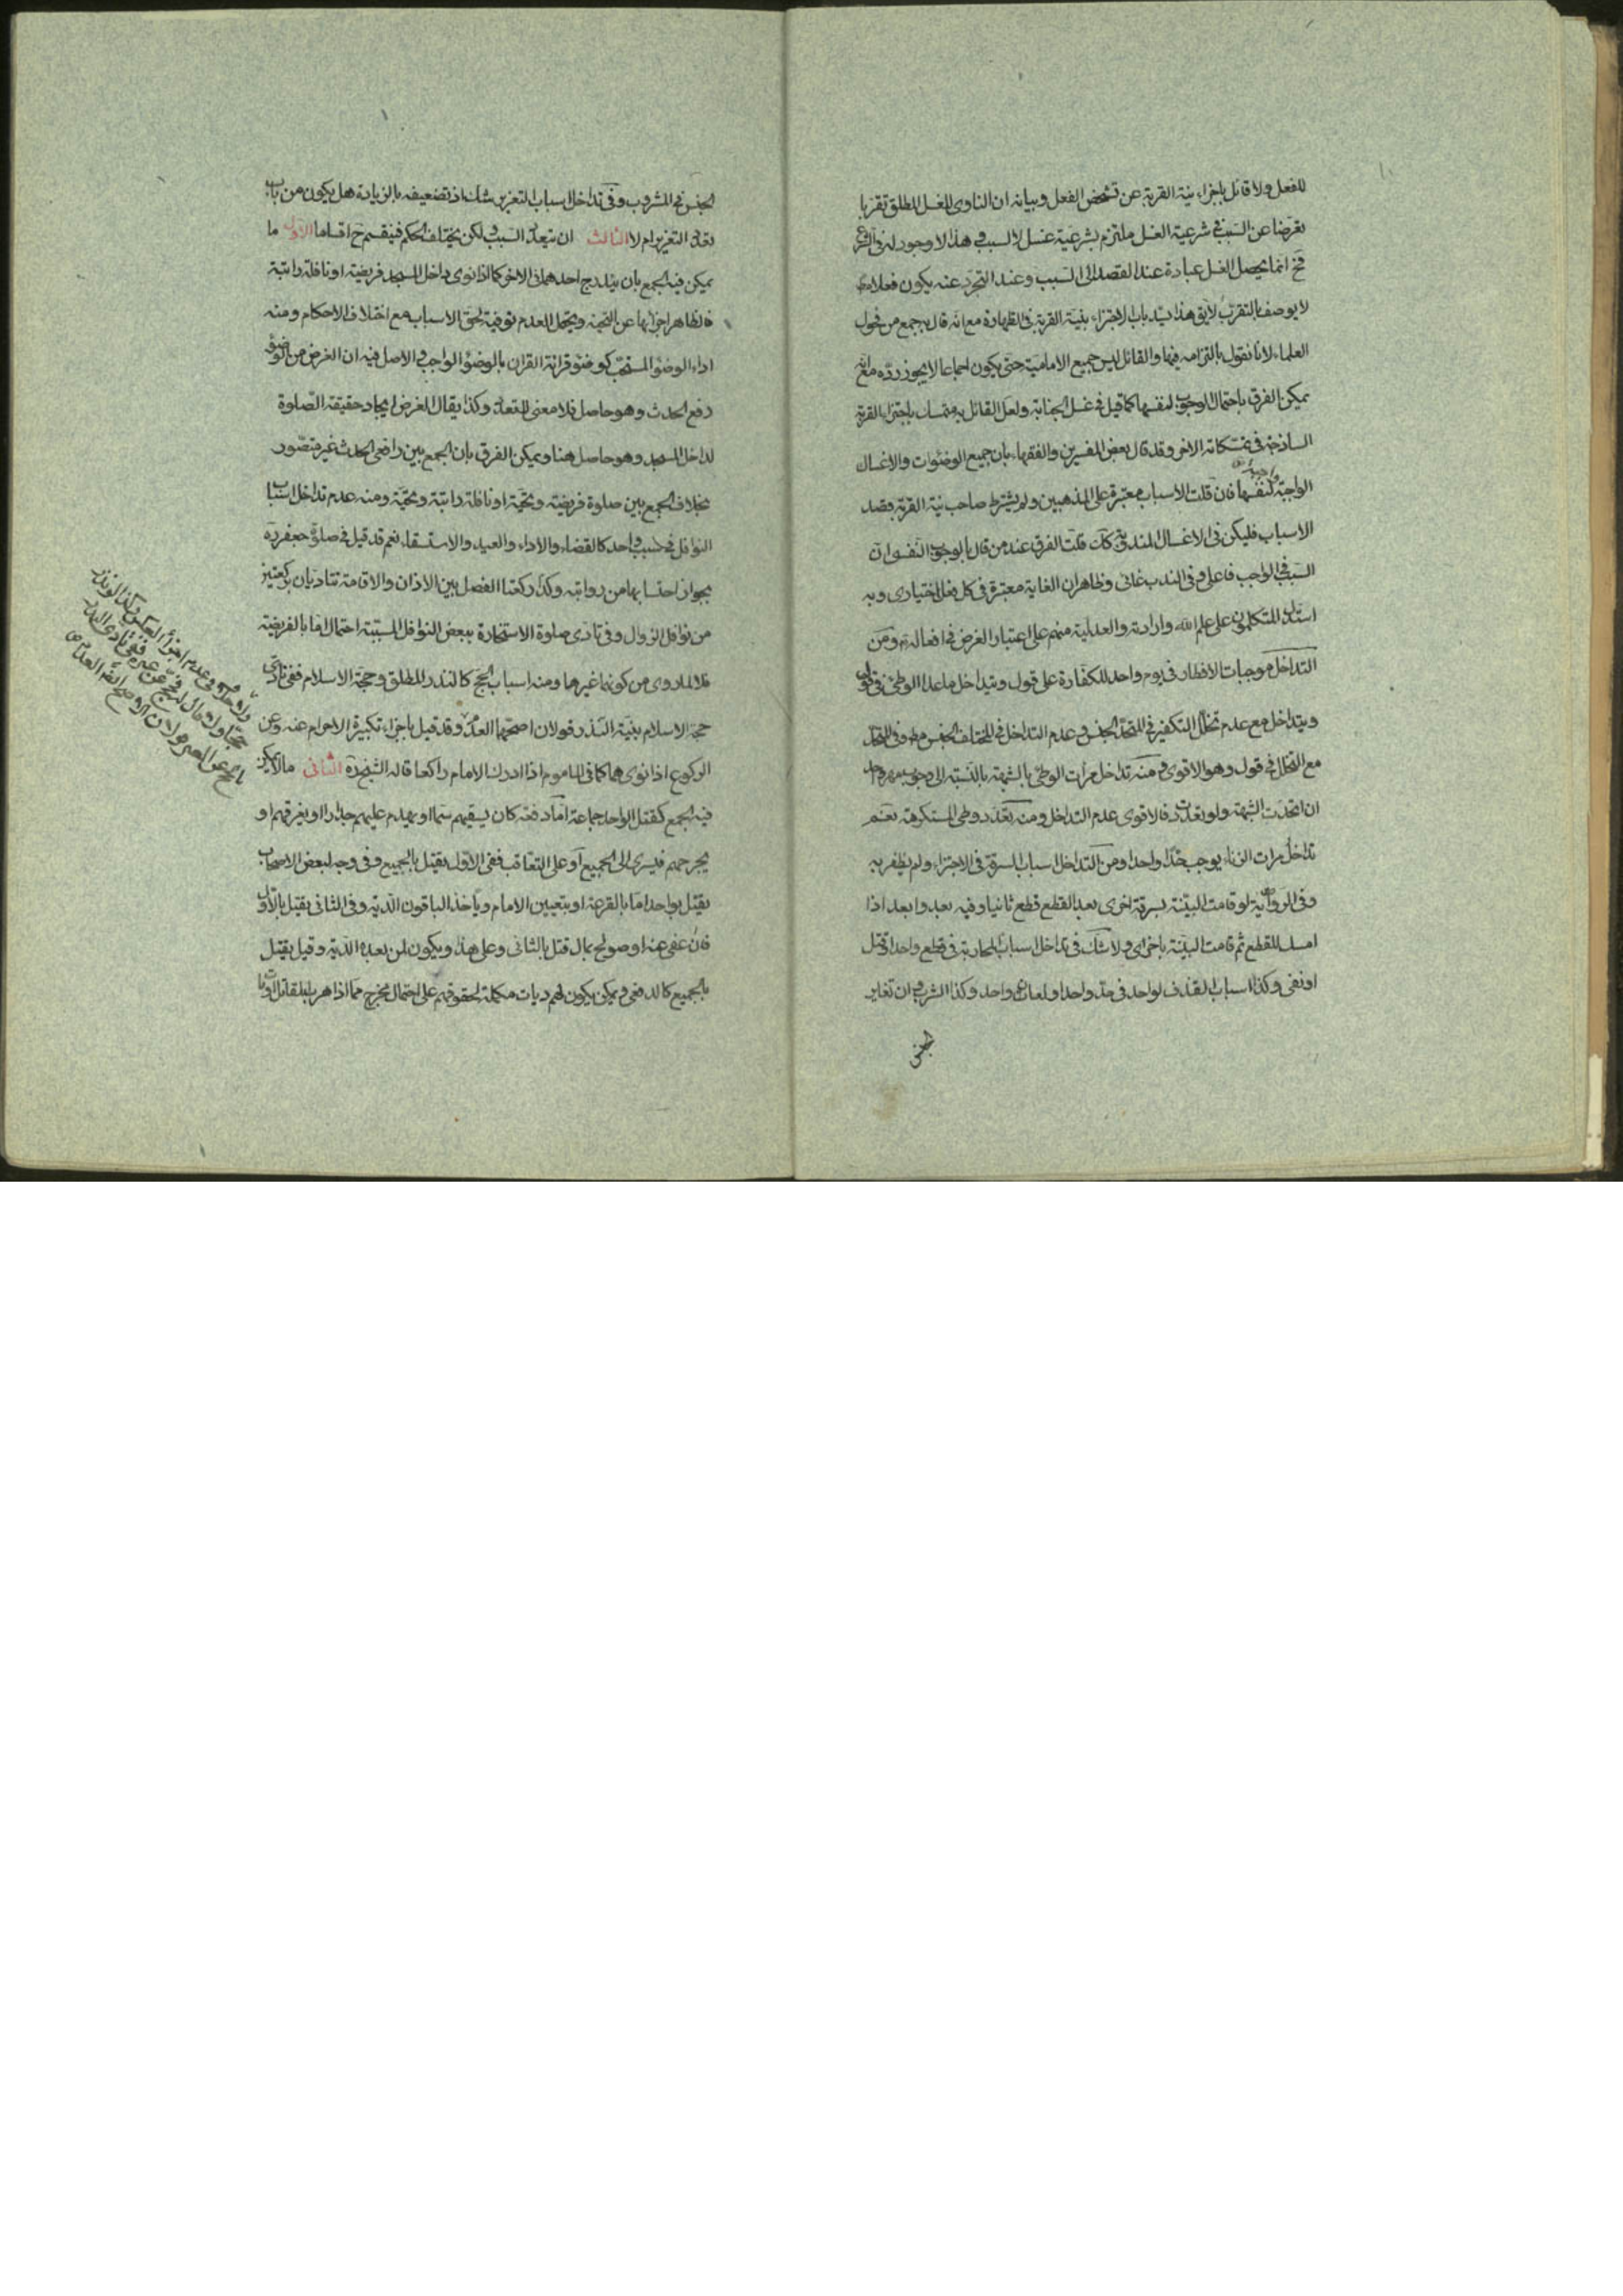 للفعل ولا قائل باجزاء نية القربة عن تشخص الفعل وبيانه ان الناوى للغسل المطلق تقربا
معرضا عن السبب فى شرعية الغسل ملتزم بشرعية غسل لا لسبب وهذا لا وجود له فى الشرع
فح انما يحصل الغسل عبادة عند القصد الى السبب وعند التجرد عنه يكون فعلا
لا يوصف بالتقرب لا يق هذا يسد باب الاجتزاء بنية القربة فى الطهارة مع انه قال به جمع من فحول
العلماء لانا نقول بالتزامه فيها والقائل ليس جميع الامامية حتى يكون اجماعا لا يجوز رده مع انه
يمكن الفرق باحتمال الوجوب لنفسها كما قيل فى غسل الجنابة ولعل القائل به متمسك باجتزاء القربة
الساذجة فى تمسكاته الاخر وقد قال بعض المفسرين والفقهاء بان جميع الوضوءات والاغسال
الواجبة واجبة لنفسها فان قلت الاسباب معتبرة على المذهبين ولم يشترط صاحب نية القربة قصد
الاسباب فليكن فى الاغسال المندوبة كك قلت الفرق عند من قال بالوجوب النفسى ان
السبب فى الواجب فاعلى وفى الندب غائى وظاهر ان الغاية معتبرة فى كل فعل اختيارى وبه
استدل المتكلمون على علم الله وارادته والعدلية منهم على اعتبار الغرض فى افعاله ومن
التداخل موجبات الافطار فى يوم واحد للكفارة على قول ويتداخل ما عدا الوطئ فى قول
ويتداخل مع عدم تخلل التكفير فى المتحد الجنس وعدم التداخل فى المختلف الجنس مطلقا وفى المتحد
مع التخلل فى قول وهو الاقوى ومنه تداخل مرات الوطئ بالشبهة بالنسبة الى وجوب مهر واحد
ان اتحدت الشبهة ولو تعددت فالاقوى عدم التداخل ومنه تعدد وطى المستكرهة نعم
تداخل مرات الزناء يوجب حدا واحدا ومن التداخل اسباب السرقة فى الاجتزاء ولم يظفر به
وفى الرواية لو قامت البينة بسرقة اخرى بعد القطع قطع ثانيا وفيه بعد وابعد اذا
امسك للقطع ثم قامت البينة باخرى ولا شك فى تداخل اسباب المحاربة فى قطع واحد او قتل
او نفى وكذا اسباب القذف لواحد فى حد واحد او لعان واحد وكذا الشرب وان تغاير
الجنس
الجنس فى المشروب وفى تداخل اسباب التعزير شك اذ تضعيفه بالزيادة هل يكون من باب
تعدد التعزير ام لا الثالث ان يتعدد السبب ولكن يختلف الحكم فينقسم ح اقساما الاول ما
يمكن فيه الجمع بان يندرج احدهما فى الاخر كما اذا نوى داخل المسجد فريضة او نافلة راتبة
فالظاهر اجزائها عن التحية ويحتمل العدم توفية لحق الاسباب مع اختلاف الاحكام ومنه
اداء الوضوء المستحب كوضوء قرائة القران بالوضوء الواجب والاصل فيه ان الغرض من الوضوء
رفع الحدث وهو حاصل فلا معنى للتعدد وكذا يقال الغرض ايجاد حقيقة الصلوة
لداخل المسجد وهو حاصل هنا ويمكن الفرق بان الجمع بين رافعى الحدث غير متصور
بخلاف الجمع بين صلوة فريضة وتحية او نافلة راتبة وتحية ومنه عدم تداخل اسباب
النوافل فى سبب واحد كالقضاء والاداء والعيد والاستسقاء نعم قد قيل فى صلوة جعفر
بجواز احتسابها من رواتبه وكذا ركعتا الفصل بين الاذان والاقامة تتاديان بركعتين
من نوافل الزوال وفى تادى صلوة الاستخارة ببعض النوافل المسببة احتمال اما بالفريضة
فلا لما روى من كونها غيرها ومنه اسباب الحج كالنذر المطلق وحجة الاسلام ففى تادى
حجة الاسلام بنية النذر قولان اصحهما العدم وقد قيل باجزاء تكبيرة الاحرام عنه وعن
الركوع اذا نوى هما كما فى الماموم اذا ادرك الامام راكعا قاله الشيخ ره الثانى ما لا يمكن
فيه الجمع كقتل الواحد جماعة اما دفعة كان يسقيهم سما او يهدم عليهم جدارا او يغرقهم او
يجرحهم فيسرى الى الجميع او على التعاقب ففى الاول يقتل بالجميع وفى وجه لبعض الاصحاب
يقتل بواحد اما بالقرعة او بتعيين الامام وياخذ الباقون الدية وفى الثانى يقتل بالاول
فان عفى عنه او صولح بمال قتل بالثانى وعلى هذا ويكون لمن بعده الدية وقيل يقتل
بالجميع كالدفعى ويمكن يكون لهم ديات مكملة لحقوقهم على احتمال مخرج مما اذا هرب القاتل او مات